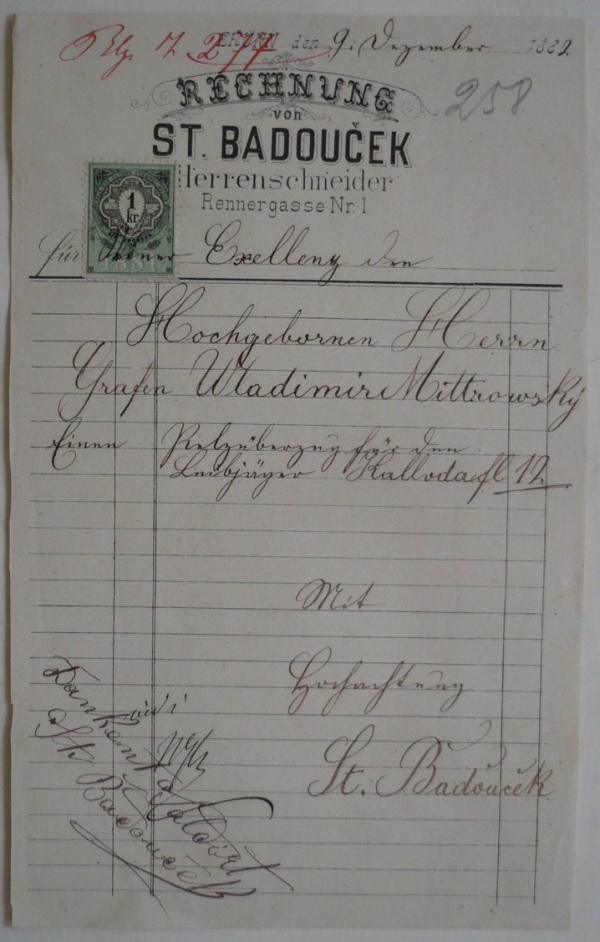 Blg. N. 277
BRÜNN den 9. Dezember 1882.
258
RECHNUNG
von
ST. BADOUČEK
Herrenschneider
Rennergasse Nr. 1
1
kr.
1881
für Seiner Exellenz den
Hochgebornen Herrn
Grafen Wladimir Mittrowský
Einen Pelzüberzug für den
Leibjäger Kallvoda fl 12
Mit
Hochachtung
St. Badouček
Dankend
Saldirt
St. Badouček